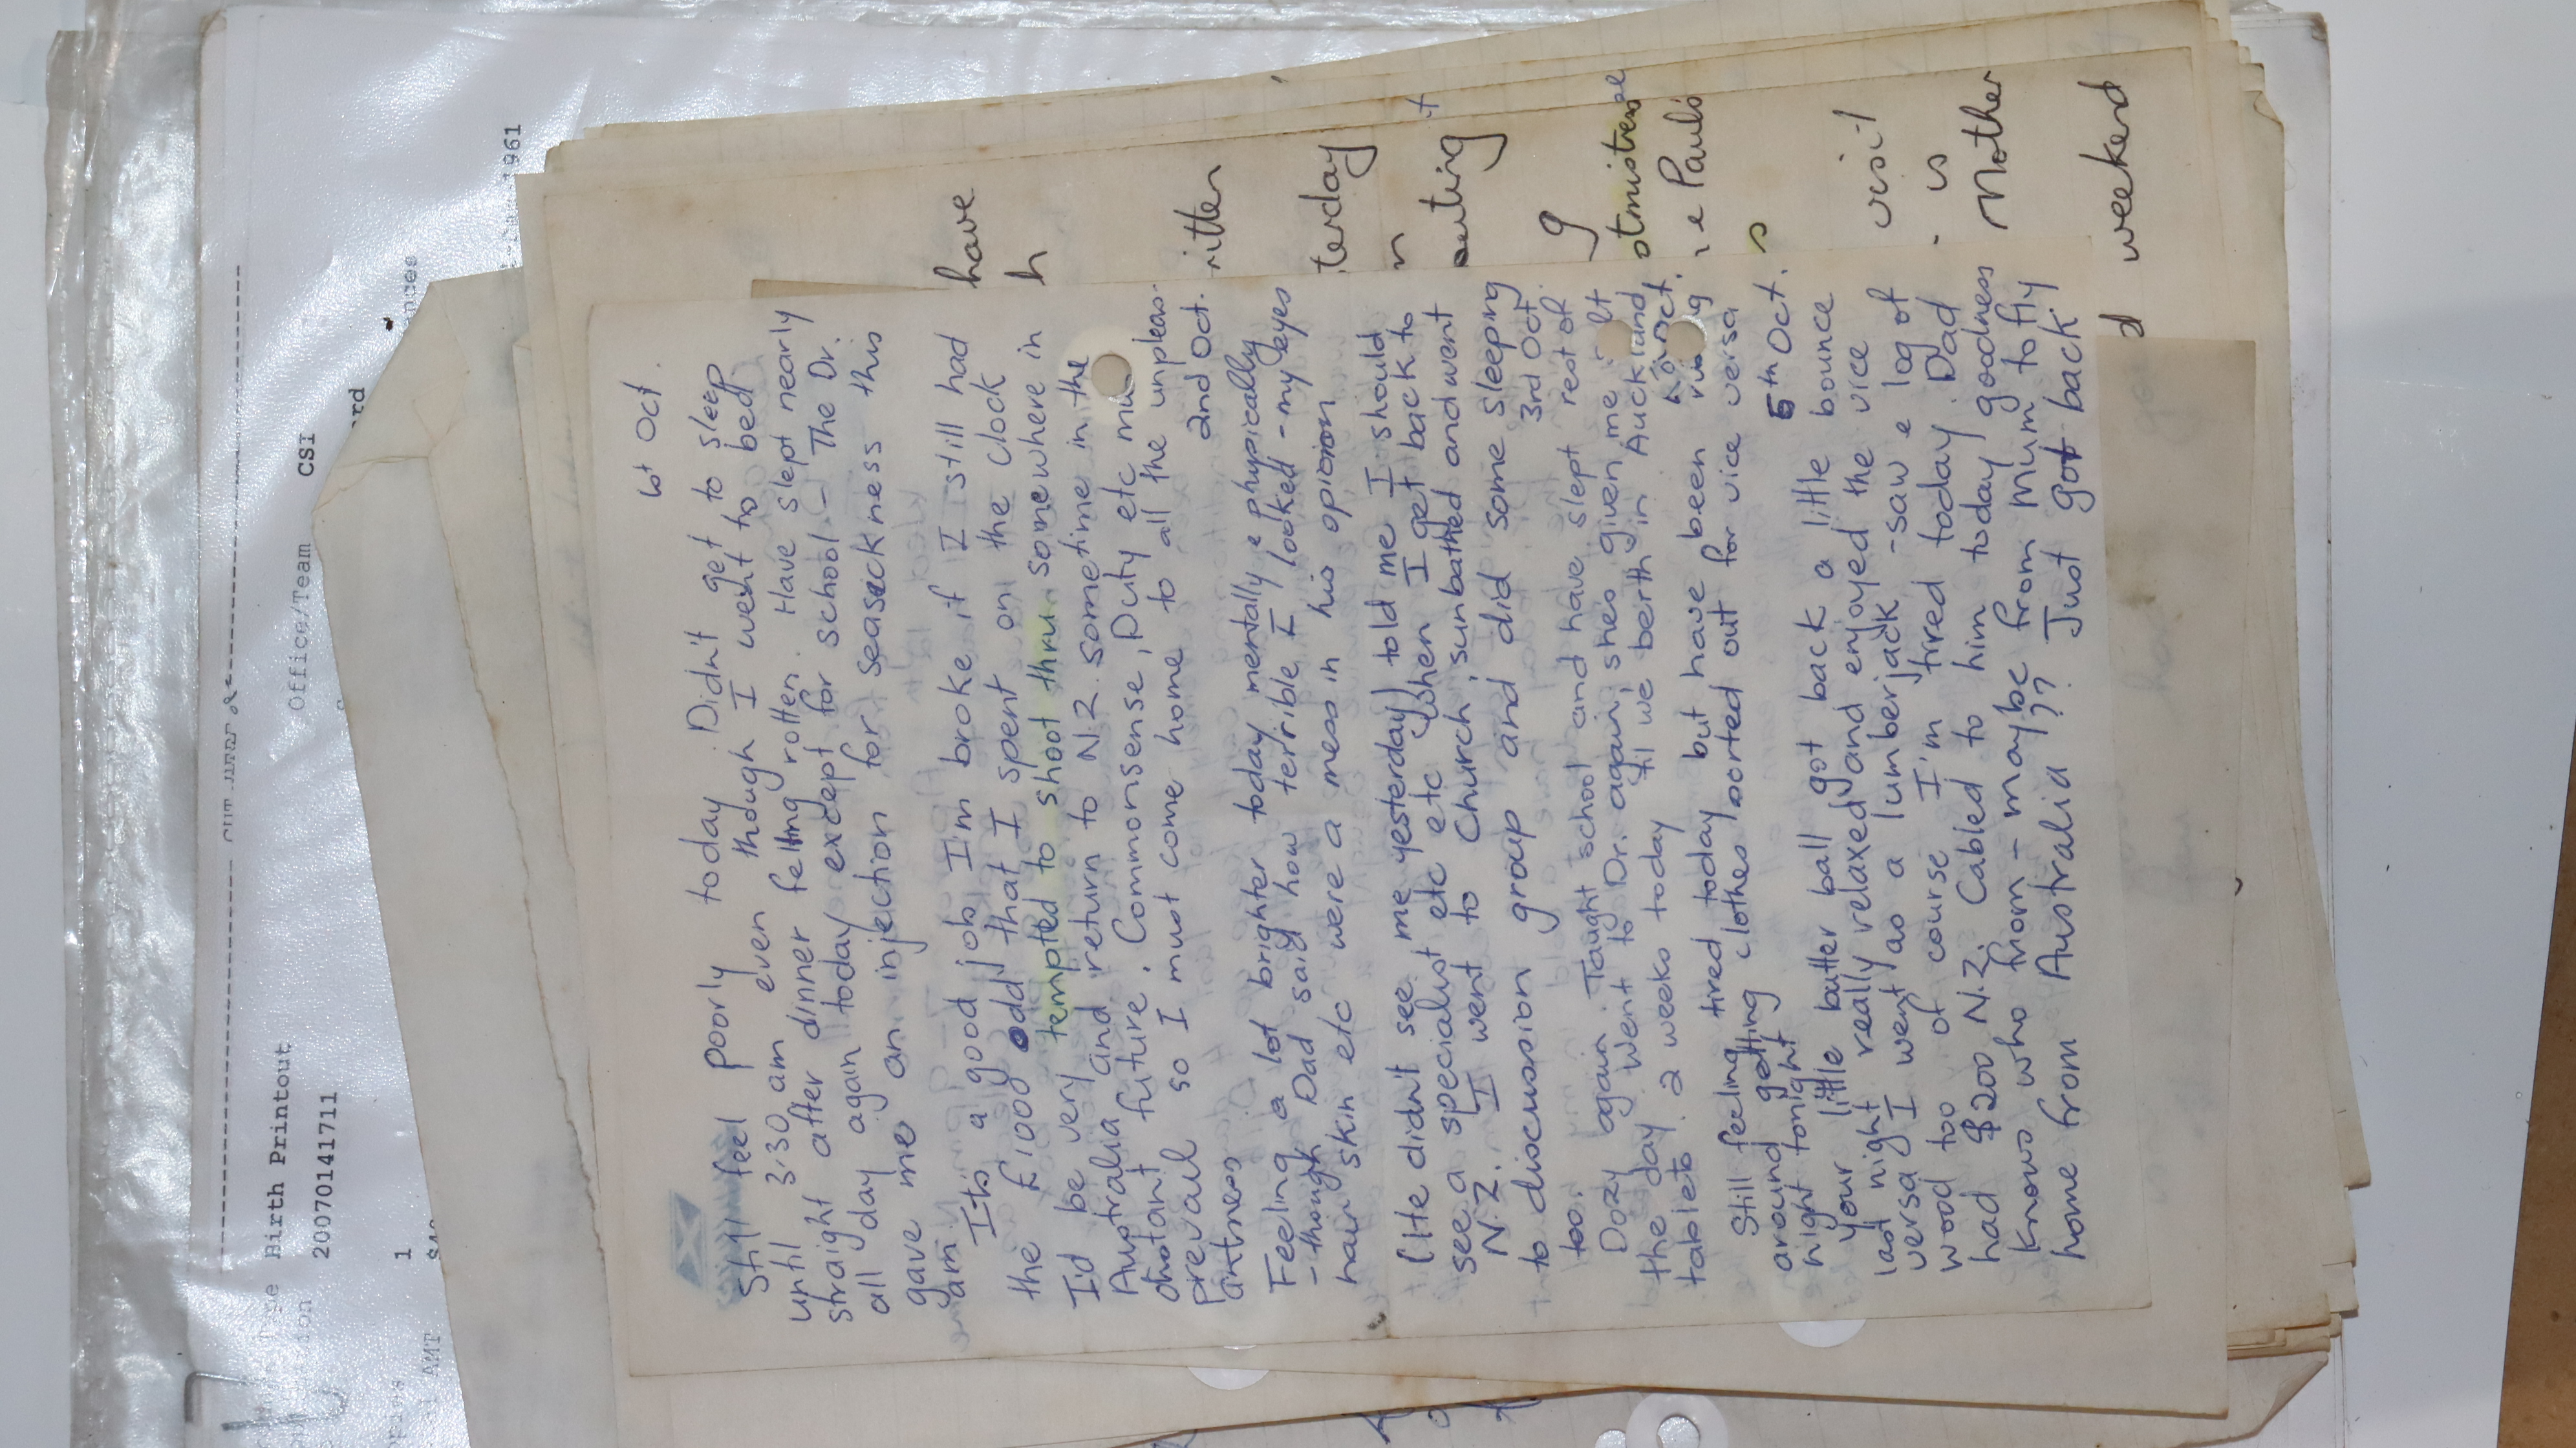 1st Oct.
Still feel poorly today. Didn't get to sleep
until 3.30 am even though I went to bed
straight after dinner feling rotten. Have slept nearly
all day again today except for school – The Dr.
gave me an injection for seasickness this
am.
It's a good job I'm broke if I still had
the £1000 odd that I spent on the clock
I'd be very tempted to shoot thru somewhere in
Australia and return to N.Z. sometime in the
distant future. Commonsense, Duty etc must
prevail so I must come home to all the unpleas-
antness
2nd Oct.
Feeling a lot brighter today mentally & physically
- though Dad said how terrible I looked - my eyes
hair skin etc were a mess in his opionion
(He didn't see me yesterday) told me I should
see a specialist etc etc etc when I get back to
N.Z. I went to Church, sunbathed and went
to discussion group and did some sleeping
too.
3rd Oct.
Dozy again Taught school and have slept rest of
the day. Went to Dr. again, shes given me
tablets. 2 weeks today til we berth in Auckland
Still feeling tired today but have been
around getting clothes sorted out for vice versa
night tonight
5th Oct.
Your little butter ball got back a little bounce
last night really relaxed and enjoyed the vice
versa I went as a lumberjack - saw & log of
wood too of course I'm tired today. Dad
had $200 N.Z. Cabled to him today goodness
knows who from - maybe from Mum to fly
home from Australia?? Just got back
have
h
ritten
terday
n
outing
g
stmistress
e Paul's
s
visit
is
Mother
d weekend
Birth Printout
20070141711
1
Office/Team CSI
1961